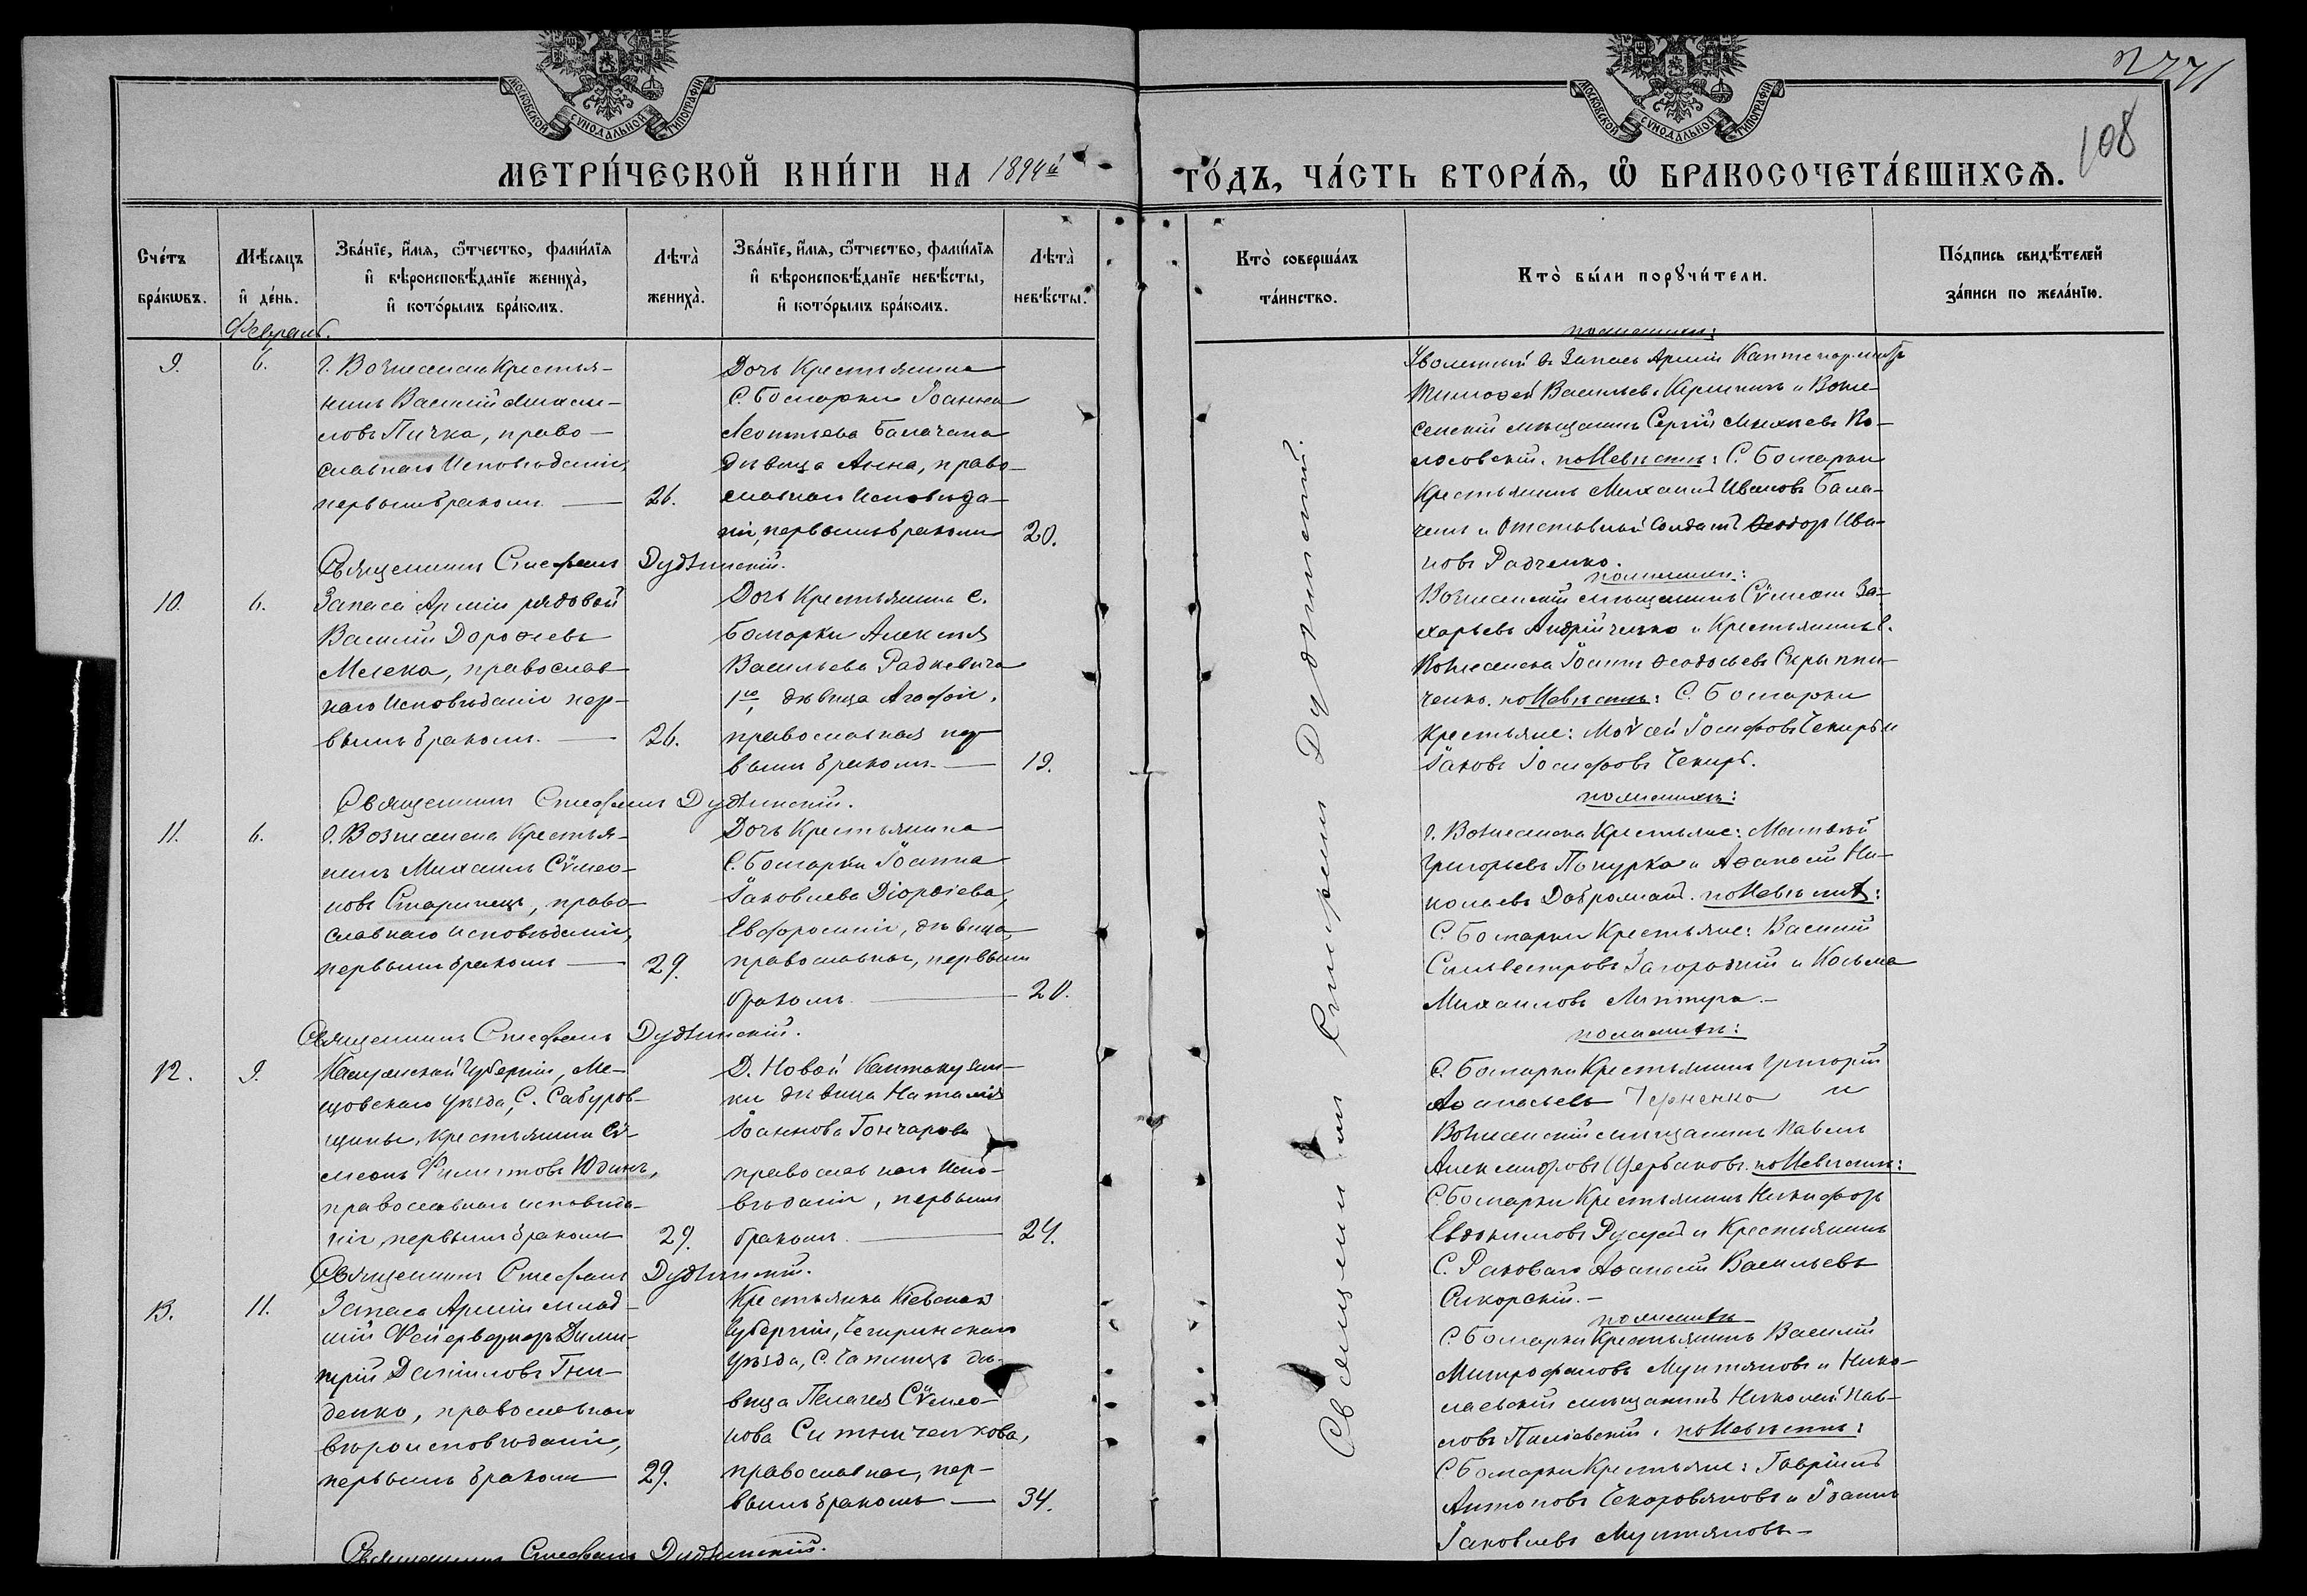 № 771
108
МОСКОВСКОЙ СѴНОДАЛЬНОЙ ТИПОГРАФІИ
МОСКОВСКОЙ СѴНОДАЛЬНОЙ ТИПОГРАФІИ
МЕТРИ́ЧЕСКОЙ КНИ́ГИ НА 1894й
ГО́ДЪ, ЧА́СТЬ ВТОРА́Ѧ, Ѡ БРАКОСОЧЕТА́ВШИХСѦ.
Сче́тъ бра́кѡвъ.
Мѣ́сѧцъ и҆ де́нь.
Зва́нїе, и҆́мѧ, ѻ҆́тчество, фами́лїѧ и҆ вѣроисповѣ́данїе жениха̀, и҆ кото́рымъ бра́комъ.
Лѣта̀ жениха̀.
Зва́нїе, и҆́мѧ, ѻ҆́тчество, фами́лїѧ и҆ вѣроисповѣ́данїе невѣ́сты, и҆ кото́рымъ бра́комъ.
Лѣта̀ невѣ́сты.
Кто̀ соверша́лъ та́инство.
Кто̀ бы́ли порꙋчи́тели.
По́дпись свидѣ́телей за́писи по жела́нїю.
Февраль.
9.
6.
г. Вознесенска Крестья-
нинъ Василій Михаи-
ловъ Пичка, право-
славнаго Исповѣданія,
первымъ бракомъ. — 26.
Дочь Крестьянина
С. Болгарки Іоанна
Леонтьева Балачана
дѣвица Анна, право-
славнаго Исповѣда-
нія, первымъ бракомъ 20.
Священникъ Стефанъ Дудѣнскій.
по женихѣ:
Уволенный въ Запасъ Арміи Каптенармусъ
Тимоѳей Васильевъ и Возне-
сенскій мѣщанинъ Сергій Ко-
лосовскій. по Невѣстѣ: С. Болгарки
Крестьянинъ Михаилъ Ивановъ Бала-
чанъ и Отставный Солдатъ Ѳеодоръ Ива-
новъ Радченко.
10.
6.
Запаса Арміи рядовой
Василій Дороѳеевъ
Мелека, православ-
наго Исповѣданія пер-
вымъ бракомъ. — 26.
Дочь Крестьянина С.
Болгарки Алексѣя
Васильева Радкевича
1го, дѣвица Агафія,
православная пер-
вымъ бракомъ — 19.
Священникъ Стефанъ Дудѣнскій.
по женихѣ:
Вознесенскій мѣщанинъ Сѵмеонъ За-
харьевъ Андрійченко и Крестьянинъ г.
Вознесенска Іоаннъ Ѳеодосьевъ Скрыпни-
ченко. по Невѣстѣ: С. Болгарки
Крестьяне: Моѵсей Іосифовъ Чекиръ и
Іаковъ Іосифовъ Чекиръ.
11.
6.
г. Вознесенска Крестья-
нинъ Михаилъ Сѵмео-
новъ Старинецъ, право-
славнаго исповѣданія,
первымъ бракомъ — 29.
Дочь Крестьянина
С. Болгарки Іоанна
Іаковлева Діордіева,
Евфросинія, дѣвица,
православная, первымъ
бракомъ. — 20.
Священникъ Стефанъ Дудѣнскій.
по женихѣ:
г. Вознесенска Крестьяне: Матвѣй
Григорьевъ Покурка и Аѳанасій Ни-
колаевъ. по Невѣстѣ:
С. Болгарки Крестьяне: Василій
Сильвестровъ Загородній и Косьма
Михаиловъ Липтуга.—
12.
9.
Калужской Губерніи, Ме-
щовскаго уѣзда, С. Сабуров-
щины, крестьянинъ Сѵ-
меонъ Филиповъ Юдинъ,
православнаго исповѣда-
нія, первымъ бракомъ 29.
Д. Новой Кантакузин-
ки дѣвица Наталія
Іоаннова Гончарова
православнаго Испо-
вѣданія, первымъ
бракомъ. — 24.
Священникъ Стефанъ Дудѣнскій.
по женихѣ:
С. Болгарки Крестьянинъ Григорій
Аѳанасьевъ Черненко и
Вознесенскій мѣщанинъ Павелъ
Александровъ Щербаковъ. по Невѣстѣ:
С. Болгарки Крестьянинъ Никифоръ
Евдокимовъ Русулъ и Крестьянинъ
С. Раковаго Аѳанасій Васильевъ
Сикорскій.—
13.
11.
Запаса Арміи млад-
шій Фейерверкеръ Дими-
трій Даніиловъ Гни-
денко, православнаго
вѣроисповѣданія,
первымъ бракомъ 29.
Крестьянка Кіевской
Губерніи, Чигиринскаго
Уѣзда, С. Чаплищъ дѣ-
вица Пелагея Сѵмео-
нова Ситниченкова,
православная, пер-
вымъ бракомъ — 34.
Священникъ Стефанъ Дудѣнскій.
по женихѣ
С. Болгарки Крестьянинъ Василій
Митрофановъ Мунтяновъ и Нико-
лаевскій мѣщанинъ Николай Пав-
ловъ Пилевскій. по Невѣстѣ:
С. Болгарки Крестьяне: Гавріилъ
Антоновъ и Іоаннъ
Іаковлевъ Мунтяновъ—
Священникъ Дудѣнскій.